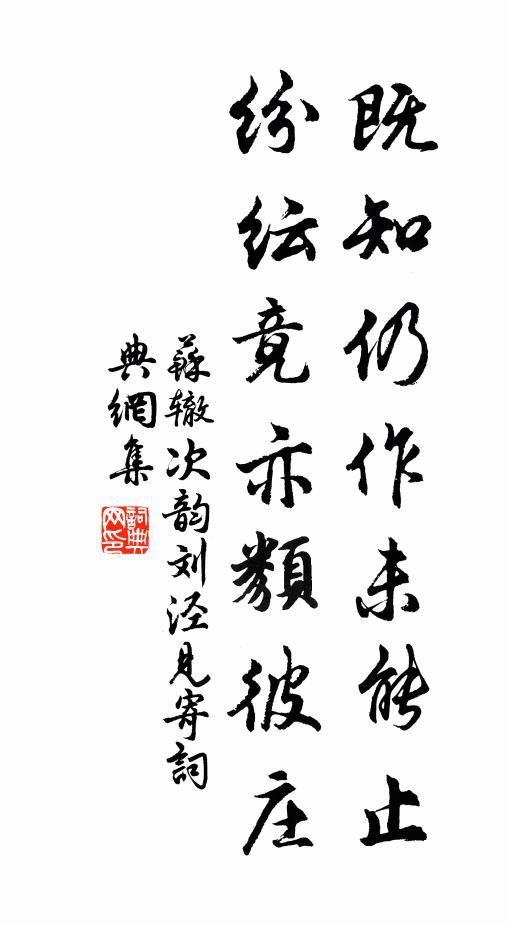 既知仍作未能止
纷纭竟亦類彼庄
蘇辙次韵刘泾見寄詞
典網集
詞典网印